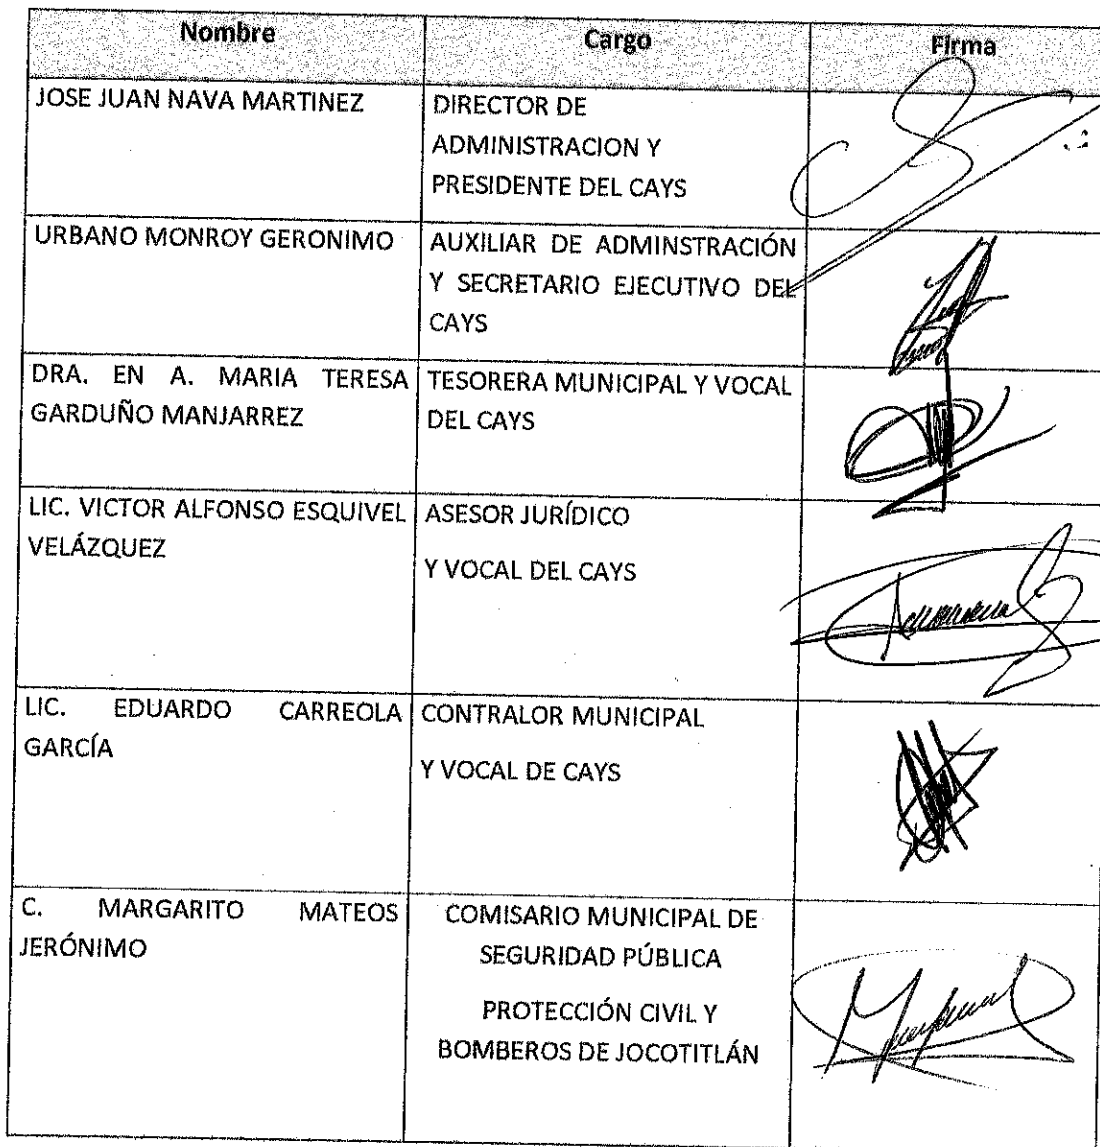 Nombre
Cargo
Firma
JOSE JUAN NAVA MARTINEZ
DIRECTOR DE
ADMINISTRACION Y
PRESIDENTE DEL CAYS
URBANO MONROY GERONIMO
AUXILIAR DE ADMINSTRACIÓN
Y SECRETARIO EJECUTIVO DEL
CAYS
DRA. EN A. MARIA TERESA
GARDUÑO MANJARREZ
TESORERA MUNICIPAL Y VOCAL
DEL CAYS
LIC. VICTOR ALFONSO ESQUIVEL
VELÁZQUEZ
ASESOR JURÍDICO
Y VOCAL DEL CAYS
LIC. EDUARDO CARREOLA
GARCÍA
CONTRALOR MUNICIPAL
Y VOCAL DE CAYS
C. MARGARITO MATEOS
JERÓNIMO
COMISARIO MUNICIPAL DE
SEGURIDAD PÚBLICA
PROTECCIÓN CIVIL Y
BOMBEROS DE JOCOTITLÁN